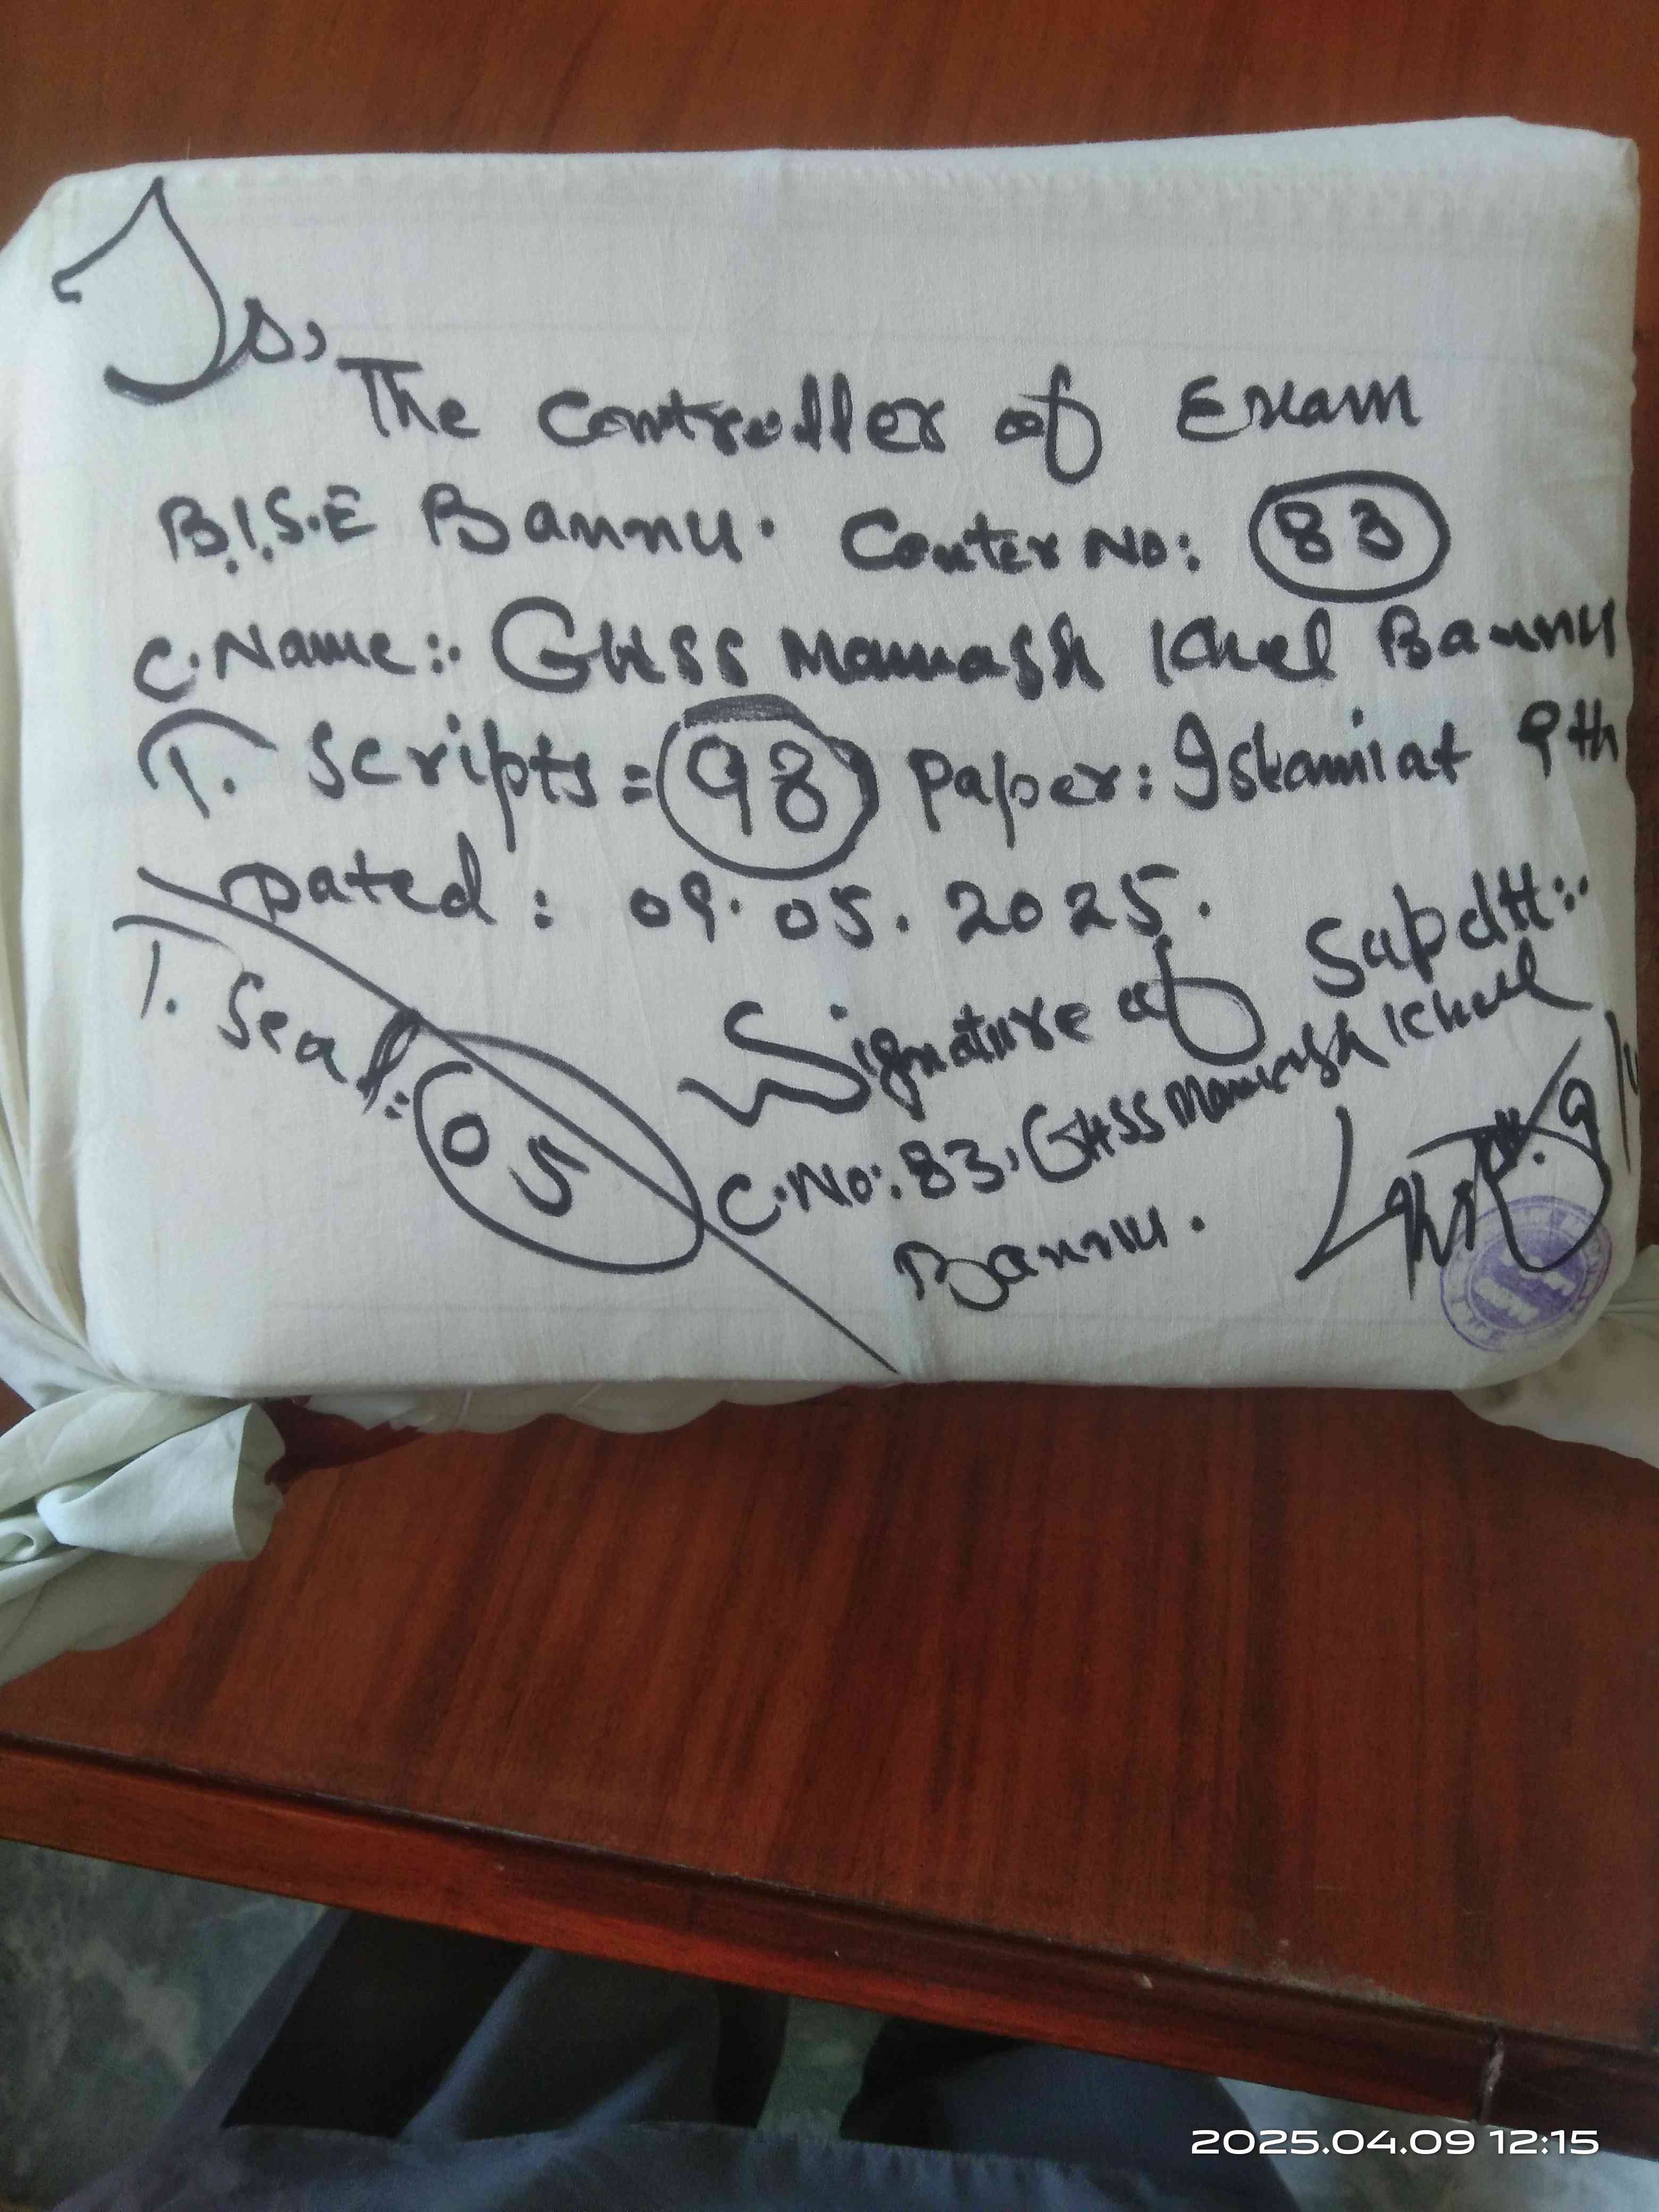 To,
The Controller of Exam
B.I.S.E Bannu. Center No: 83
C.Name:. GHSS Mamash Khel Bannu
T. Scripts = 98 Paper: Islamiat 9th
Dated: 09.05.2025.
T. Seal: 05
Signature of Supdtt:.
C.No:. 83, GHSS Mamash Khel
Bannu.
2025.04.09 12:15